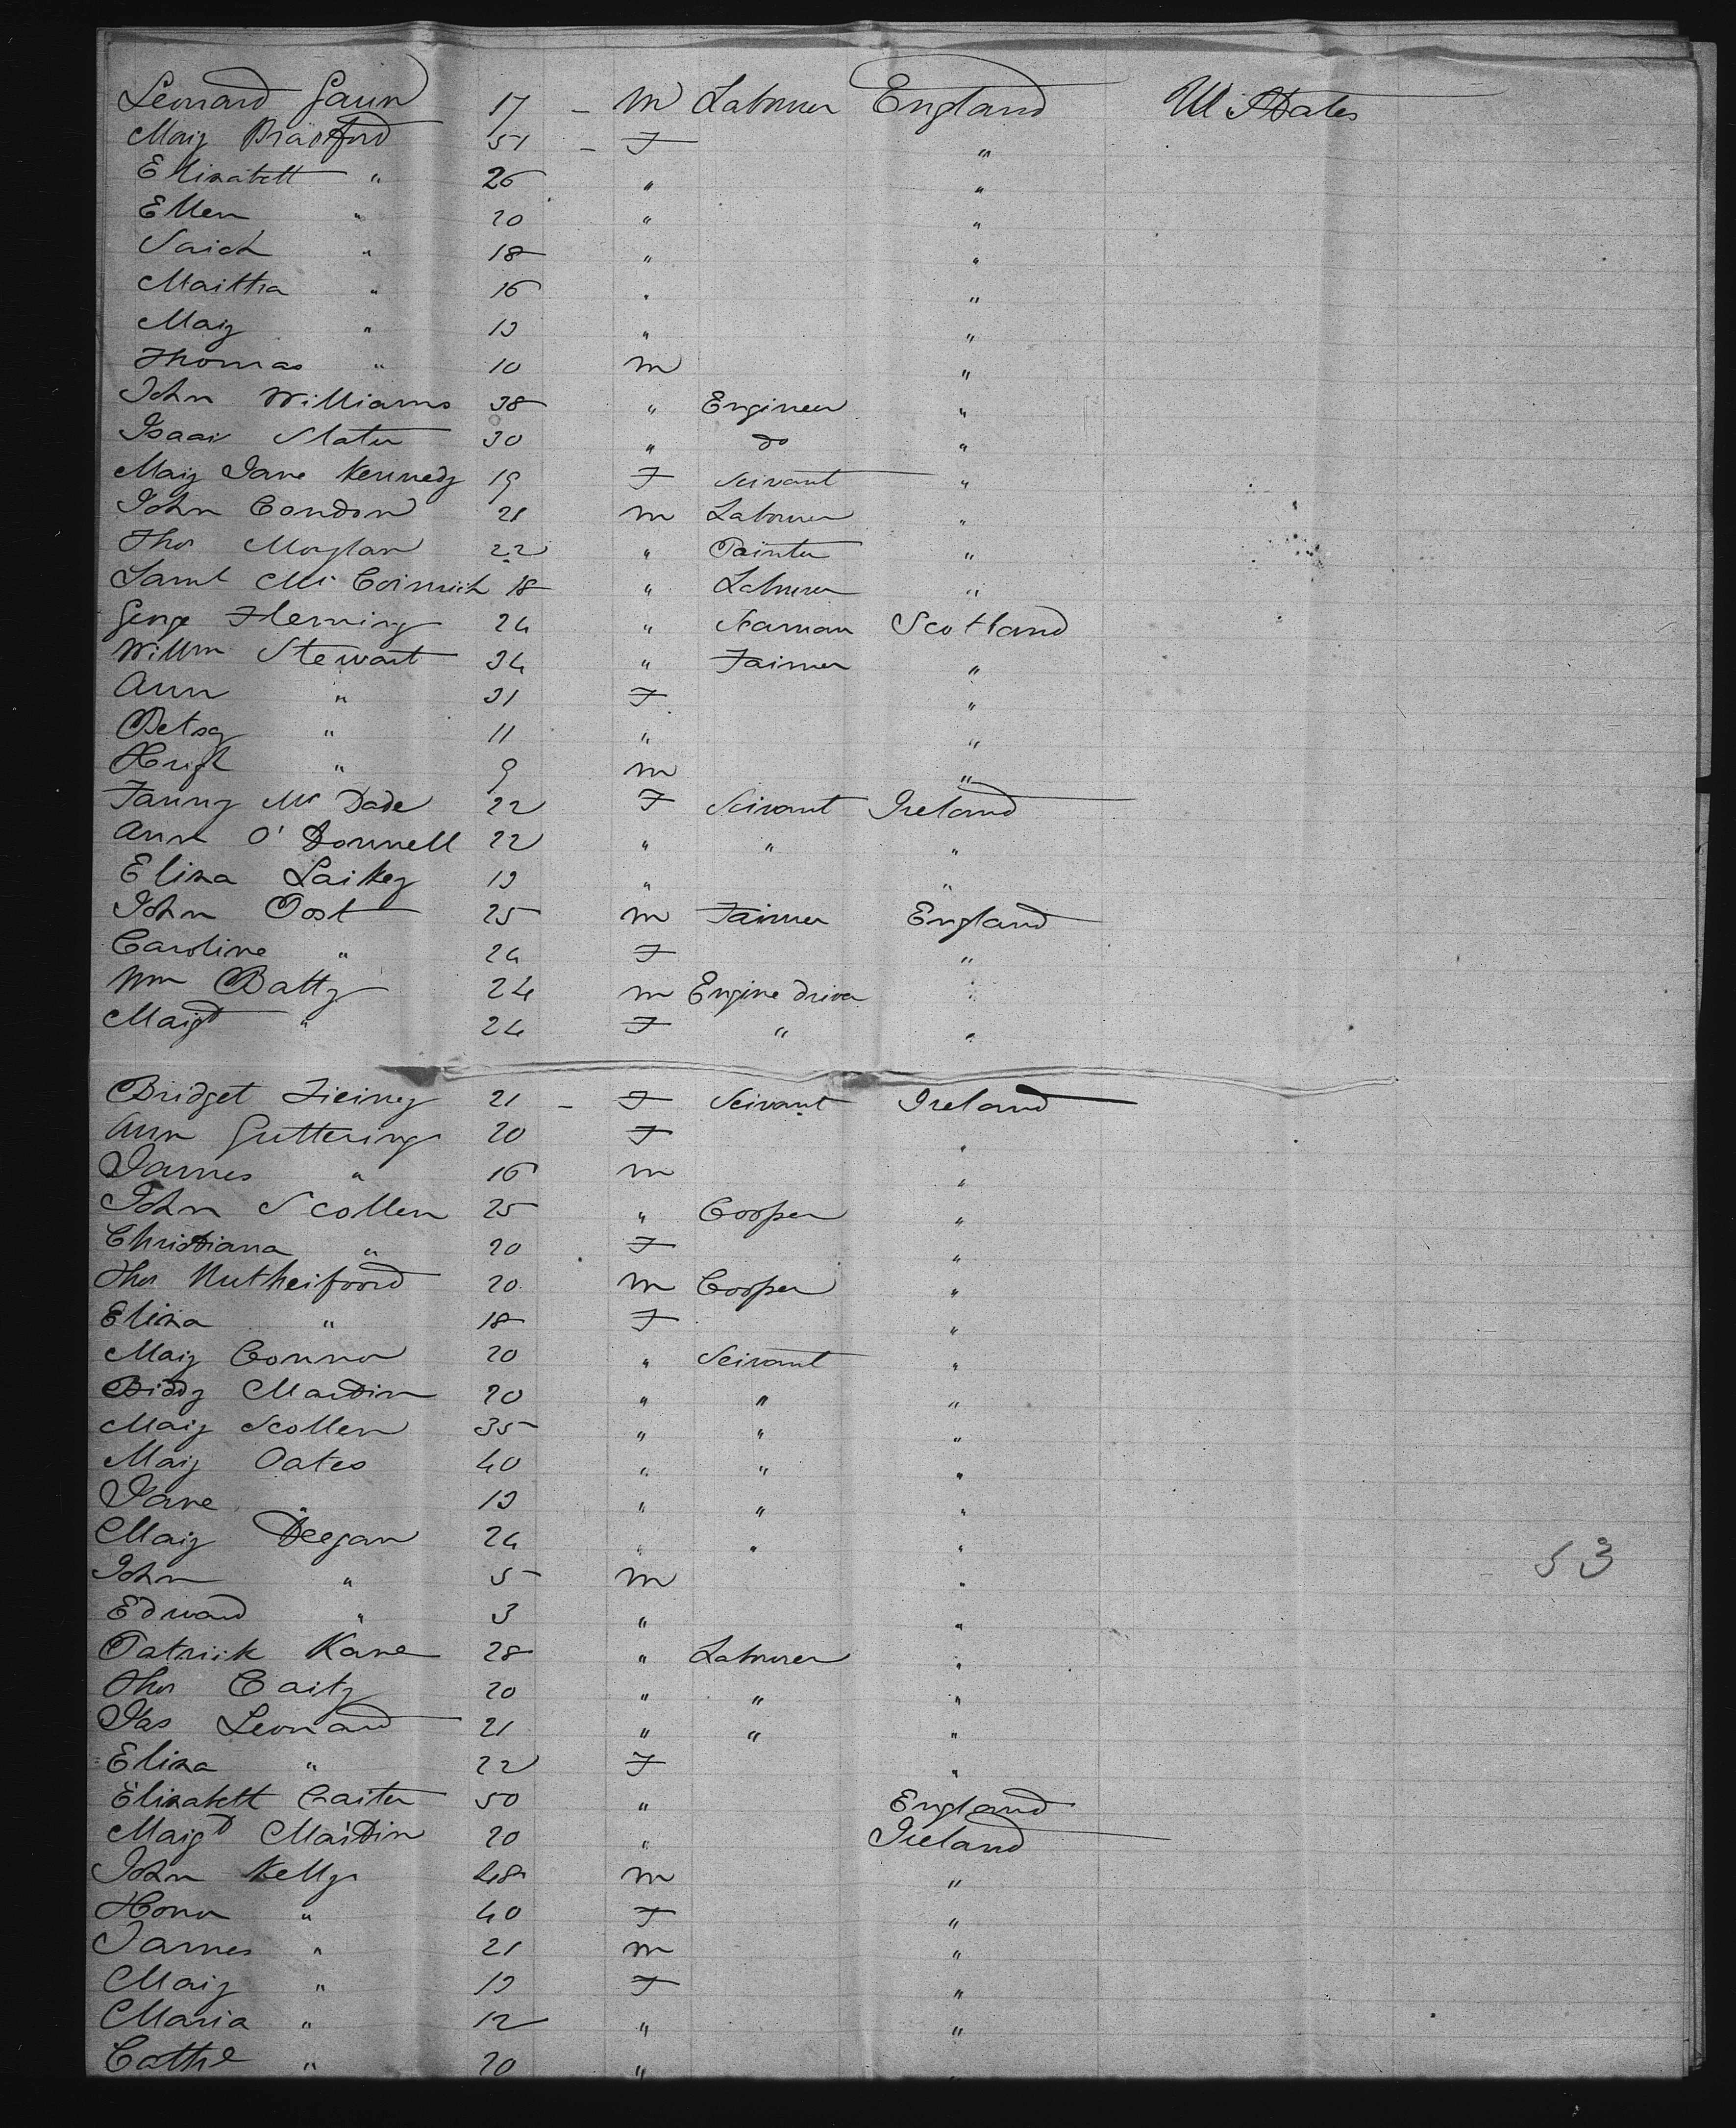 Leonard Gaun 17 - M Labourer England U States
Mary Bradford 51 - F "
Elizabeth " 26 " "
Ellen " 20 " "
Sarah " 18 " "
Martha " 16 " "
Mary " 13 " "
Thomas " 10 M "
John Williams 38 " Engineer "
Isaac Slater 30 " do "
Mary Jane Kennedy 19 F Servant "
John Condon 21 M Labourer "
Thos 22 " Painter "
Saml Mc Cormick 18 " Labourer "
George Fleming 24 " Seaman Scotland
Willm Stewart 34 " Farmer "
Ann " 31 F "
Betsy " 11 " "
Hugh " 9 M "
Fanny Mc Dade 22 F Servant Ireland
Ann O' Donnell 22 " " "
Eliza Larkey 13 " "
John Oost 25 M Farmer England
Caroline " 24 F "
Wm Batty 24 M Engine driver "
Margt " 24 F " "
Bridget 21 - F Servant Ireland
Ann Gutterings 20 F "
James " 16 M "
John Scollen 25 " Cooper "
Christiana " 20 F "
Thos Rutherfoord 20 M Cooper "
Eliza " 18 F "
Mary Connor 20 " Servant "
Biddy Martin 20 " " "
Mary Scollen 35 " " "
Mary Oates 40 " " "
Jane " 13 " " "
Mary Deegan 24 " " "
John " 5 M "
53
Edward " 3 " "
Patrick Kane 28 " Labourer "
Thos Carty 20 " " "
Jas Leonard 21 " " "
Eliza " 22 F "
Elizabeth Carter 50 " England
Margt Martin 20 " Ireland
John Kelly 48 M "
Honor " 40 F "
James " 21 M "
Mary " 13 F "
Maria " 12 " "
Cathe " 20 " "